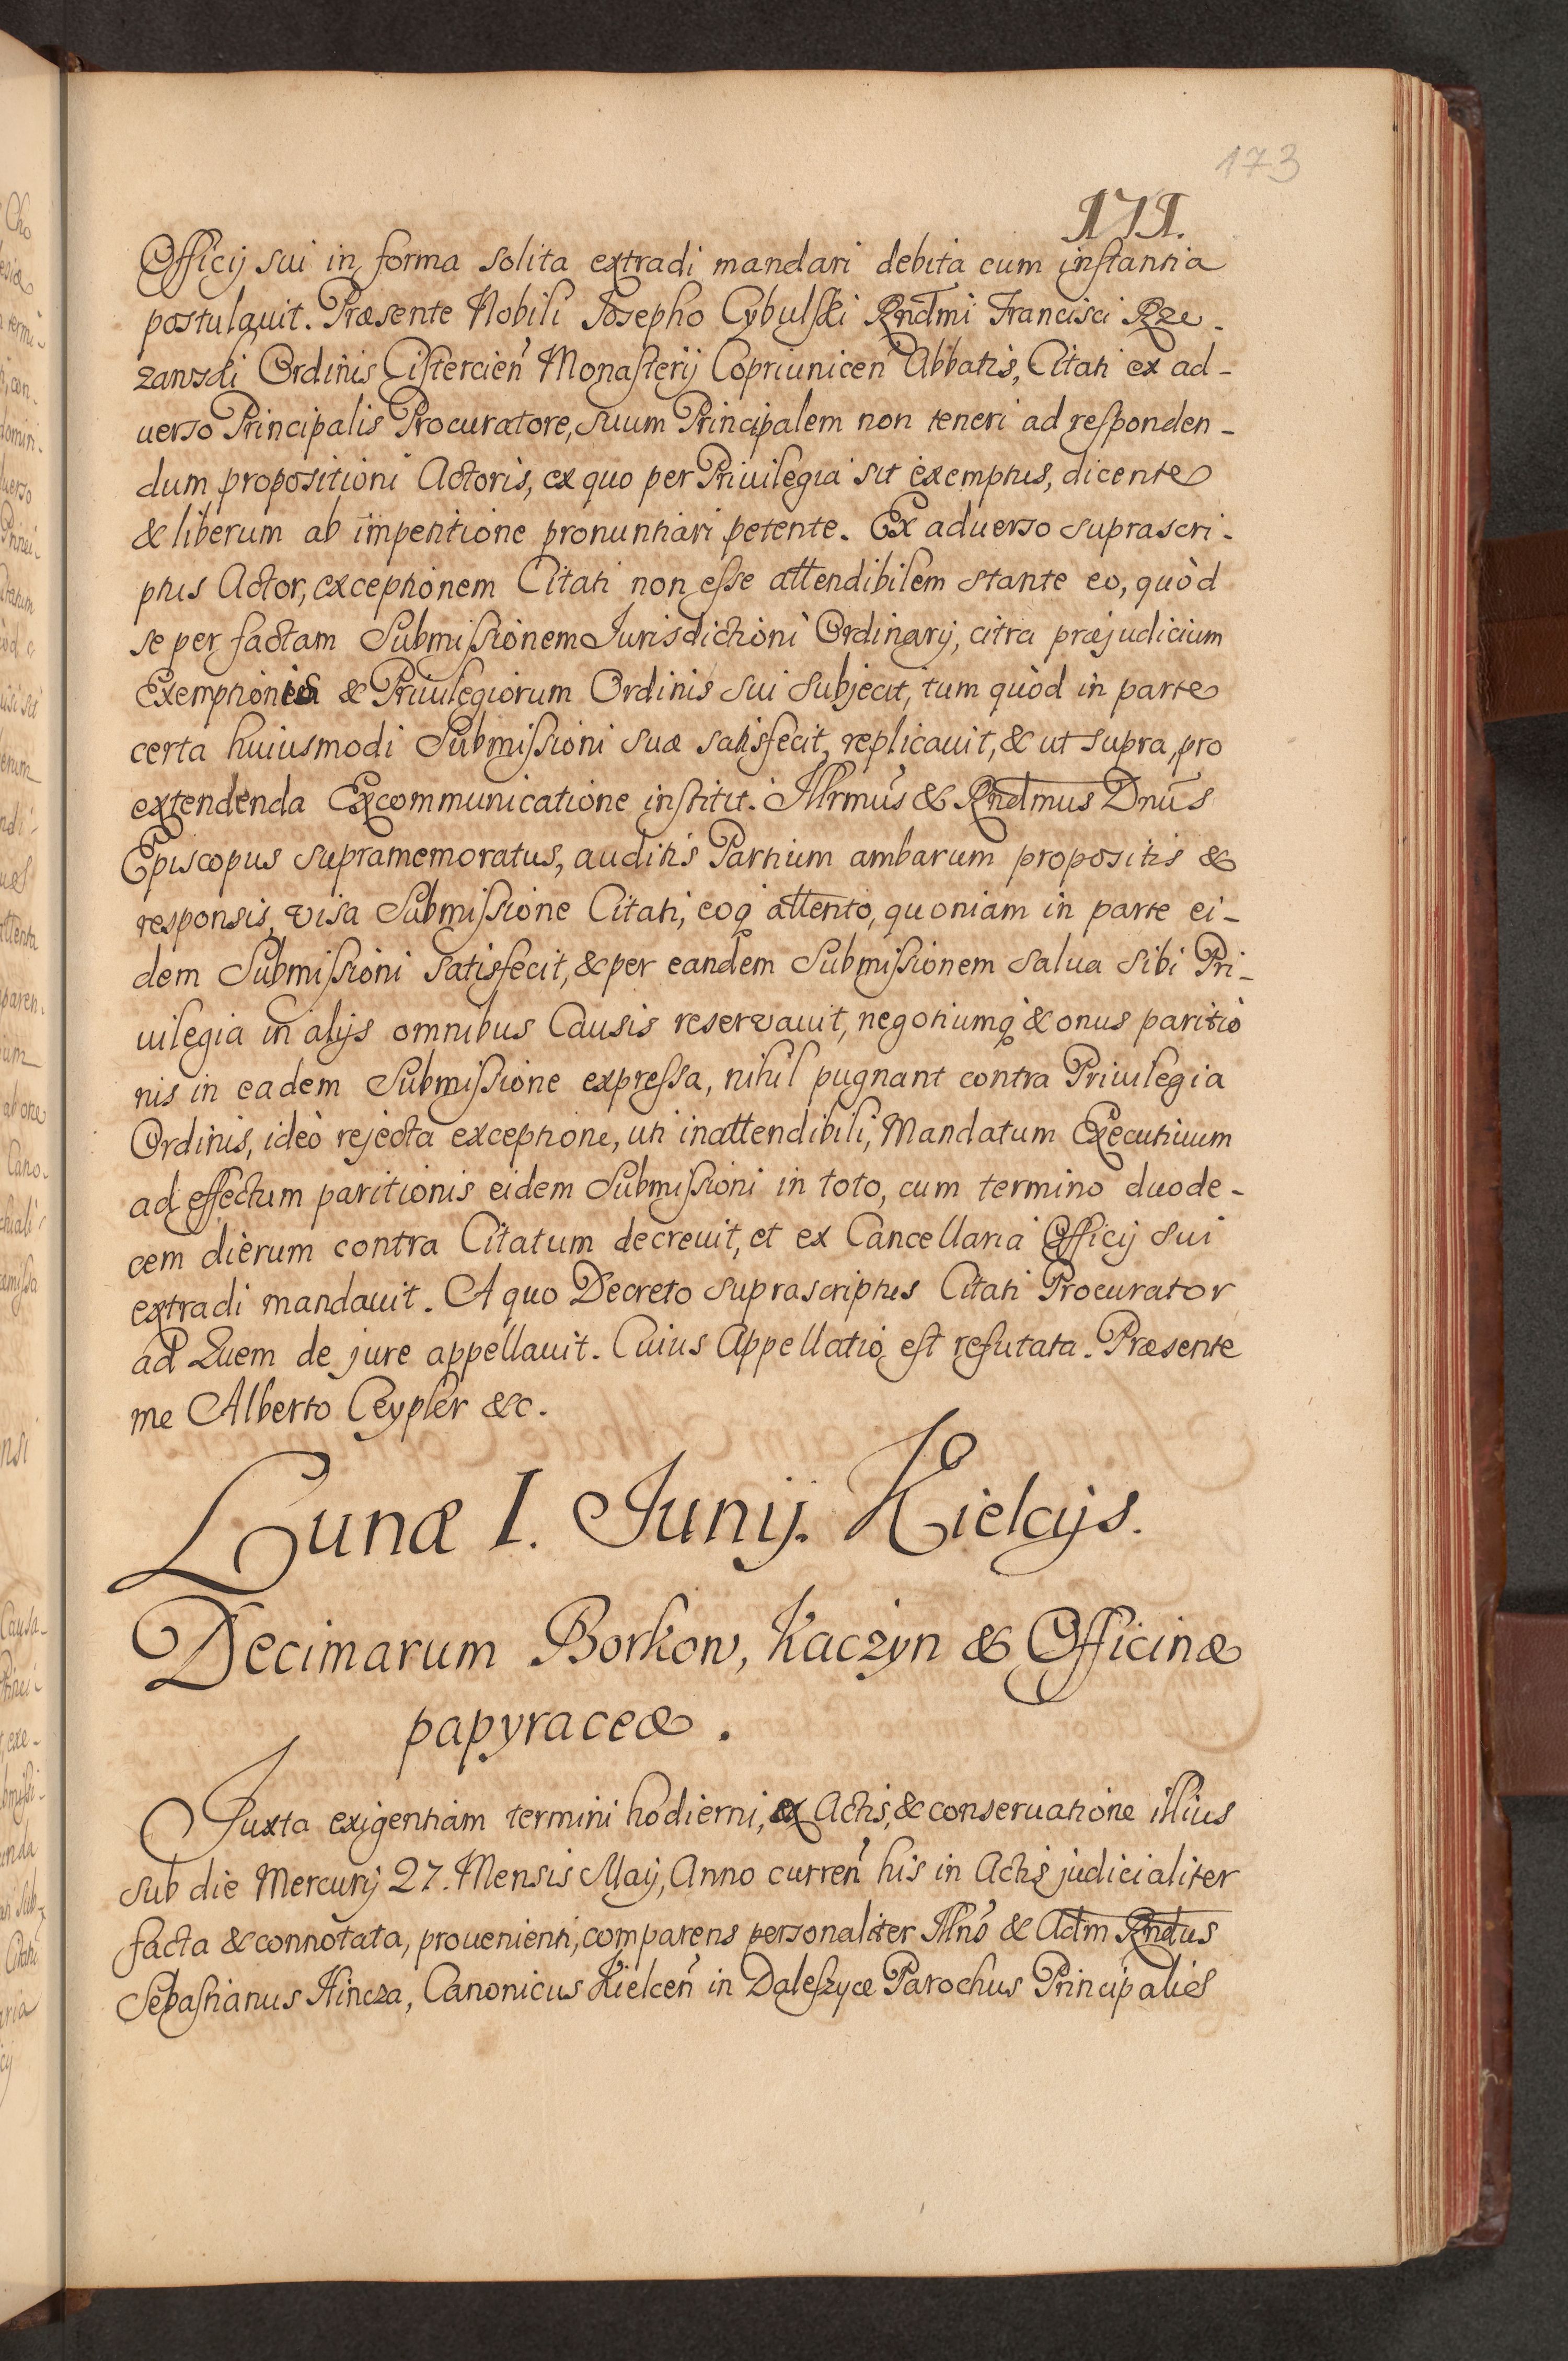 173
171.
Officij sui in forma solita extradi mandari debita cum instantia
postulauit. Præsente Nobili Josepho Cybulski Rndmi Francisci Rze-
zanski Ordinis Cistercien̄ Monasterij Copriunicen̄ Abbatis, Citati ex ad-
uerso Principalis Procuratore, suum Principalem non teneri ad responden-
dum propositioni Actoris, ex quo per Priuilegia sit exemptus, dicente
& liberum ab impetitione pronuntiari petente. Ex aduerso suprascri-
ptus Actor, exceptionem Citati non esse attendibilem stante eo, quòd
se per factam Submissionem Jurisdictioni Ordinarij, citra præjudicium
Exemptionis & Priuilegiorum Ordinis sui subjecit, tum quòd in parte
certa huiusmodi Submissioni suæ satisfecit, replicauit, & ut supra, pro
extendenda Excommunicatione institit. Illrmus & Rndmus Dnus
Episcopus supramemoratus, auditis Partium ambarum propositis &
responsis, visa Submissione Citati, eoq attento, quoniam in parte ei-
dem Submissioni satisfecit, & per eandem Submissionem salua sibi Pri-
uilegia in alijs omnibus Causis reservauit, negotiumq & onus paritio
nis in eadem Submissione expressa, nihil pugnant contra Priuilegia
Ordinis, ideò rejecta exceptione, uti inattendibili, Mandatum Executiuum
ad effectum paritionis eidem Submissioni in toto, cum termino duode-
cem dierum contra Citatum decreuit, et ex Cancellaria Officij sui
extradi mandauit. A quo Decreto suprascriptus Citati Procurator
ad Quem de jure appellauit. Cuius Appellatio est refutata. Præsente
me Alberto Ceypler &c.
Lunæ 1. Junij. Kielcijs.
Decimarum Borkow, Kaczyn & Officinæ
papyraceæ.
Juxta exigentiam termini hodierni, ex Actis, & conseruatione illius
sub die Mercurij 27. Mensis Maij, Anno curren̄ his in Actis judicialiter
facta & connotata, prouenienti, comparens personaliter Illris & Adm Rndus
Sebastianus Hincza, Canonicus Kielcen̄ in Daleszyce Parochus Principalis